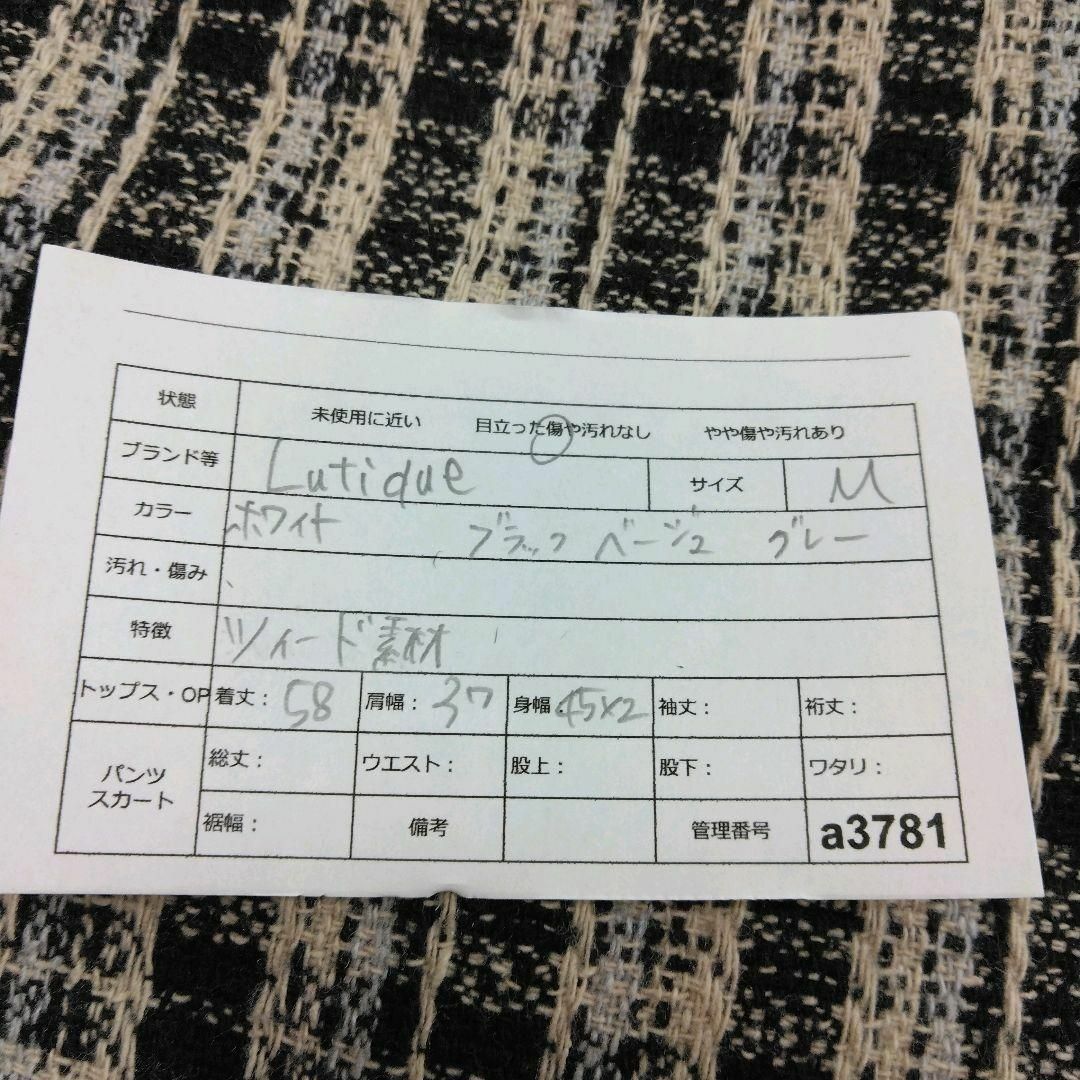 状態 未使用に近い 目立った傷や汚れなし やや傷や汚れあり
ブランド等 Lutique サイズ M
カラー ホワイト ブラック ベージュ グレー
汚れ・傷み
特徴 ツィード素材
トップス・OP 着丈: 58 肩幅: 37 身幅: 45×2 袖丈: 裄丈:
パンツ スカート 総丈: ウエスト: 股上: 股下: ワタリ:
裾幅: 備考 管理番号 a3781